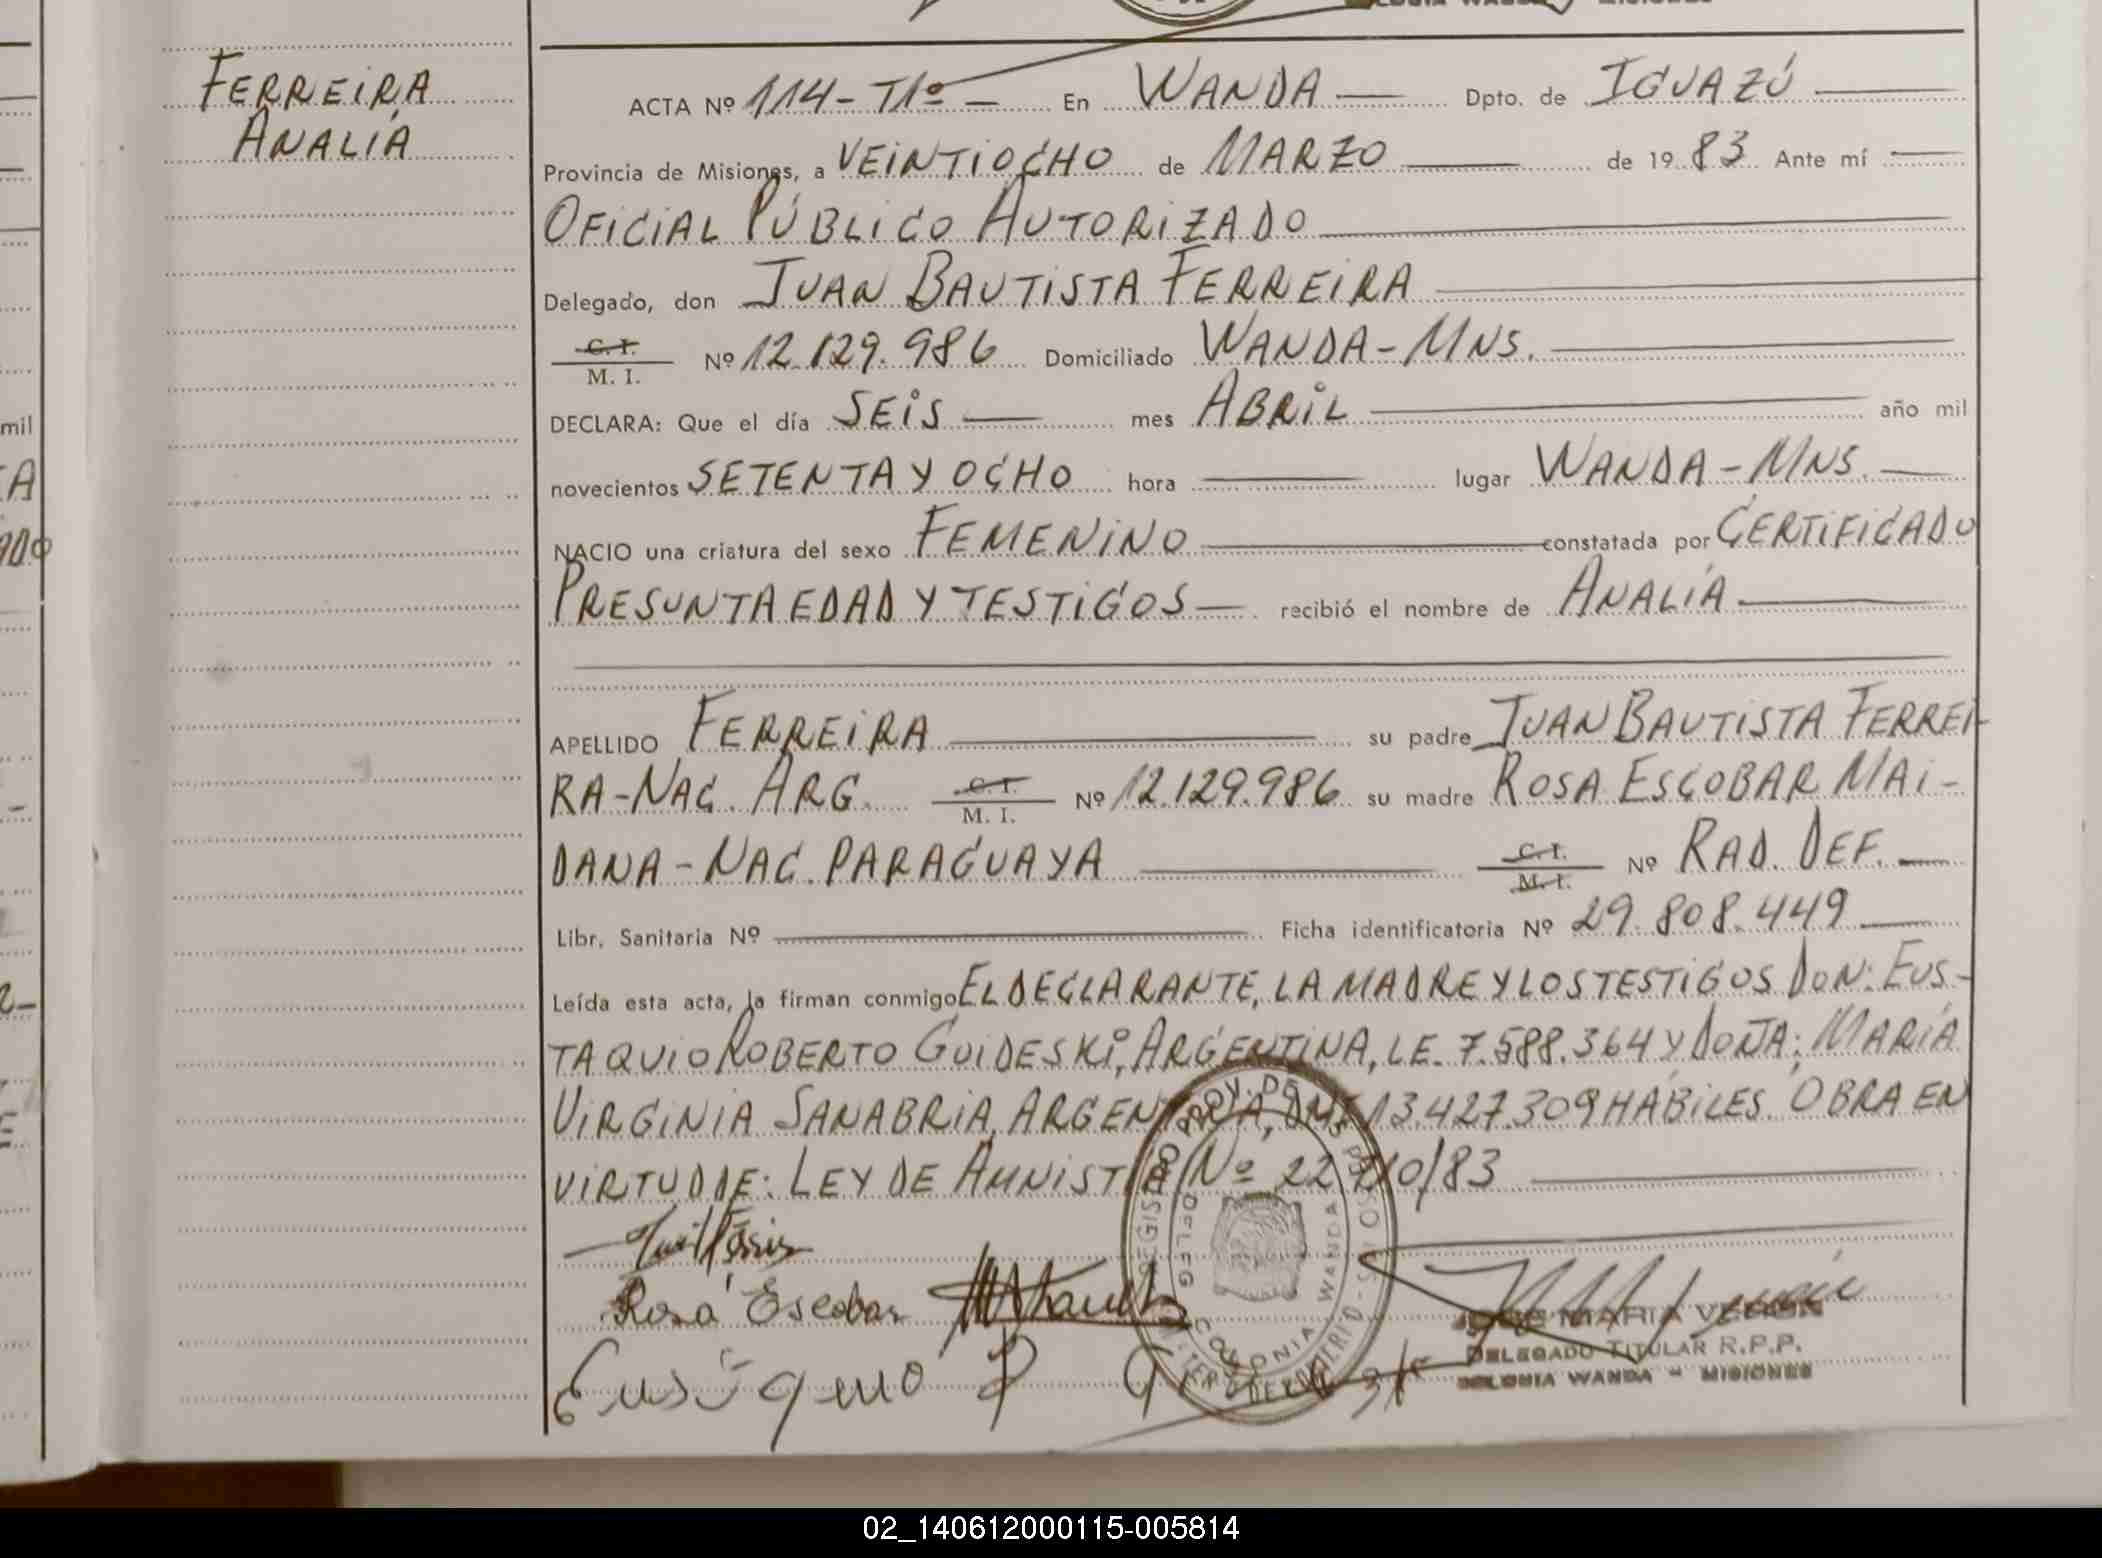 FERREIRA
ANALIA
ACTA Nº 114-T1º- En WANDA Dpto. de IGUAZÚ
Provincia de Misiones, a VEINTIOCHO de MARZO de 1983 Ante mí
OFICIAL PÚBLICO AUTORIZADO
Delegado, don JUAN BAUTISTA FERREIRA
C. I.
M. I. Nº 12.129.986 Domiciliado WANDA-MNS.
DECLARA: Que el día SEIS mes ABRIL año mil
novecientos SETENTA Y OCHO hora lugar WANDA-MNS.
NACIO una criatura del sexo FEMENINO constatada por CERTIFICADO
PRESUNTA EDAD Y TESTIGOS recibió el nombre de ANALIA
APELLIDO FERREIRA su padre JUAN BAUTISTA FERREI-
RA-NAC. ARG. C. I. M. I. Nº 12.129.986 su madre ROSA ESCOBAR MAI-
DANA-NAC. PARAGUAYA C. I. M. I. Nº RAD. DEF.
Libr. Sanitaria Nº Ficha identificatoria Nº 29.808.449
Leída esta acta, la firman conmigo EL DECLARANTE, LA MADRE Y LOS TESTIGOS DON: EUS-
TAQUIO ROBERTO GUIDESKI, ARGENTINA, L.E. 7.588.364 Y DOÑA: MARÍA
VIRGINIA SANABRIA, ARGENTINA, DNI 13.427.309 HÁBILES. OBRA EN
VIRTUD DE: LEY DE AMNISTIA Nº 22.710/83
Rosa Escobar
MARIA
DELEGADO TITULAR R.P.P.
COLONIA WANDA - MISIONES
DELEG COLONIA WANDA
02_140612000115-005814